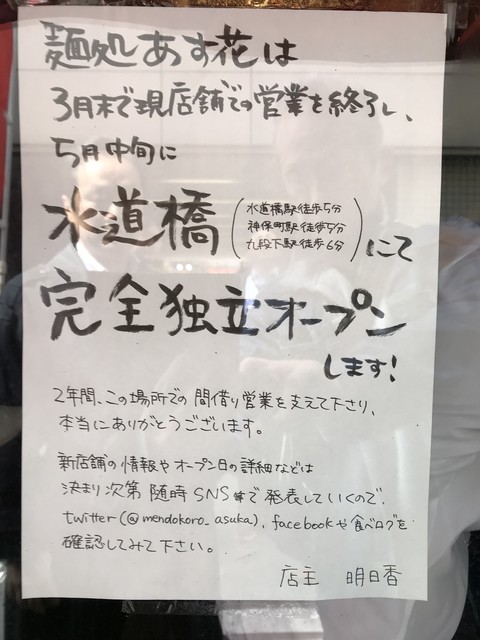 麺処あす花は
3月末で現店舗での営業を終了し、
5月中旬に
水道橋
(水道橋駅徒歩5分
神保町駅徒歩5分
九段下駅徒歩6分)
にて
完全独立オープン
します!
2年間、この場所での間借り営業を支えて下さり、
本当にありがとうございます。
新店舗の情報やオープン日の詳細などは
決まり次第 随時SNSで発表していくので、
twitter(@mendokoro_asuka)、facebookや食べログを
確認してみて下さい。
店主 明日香